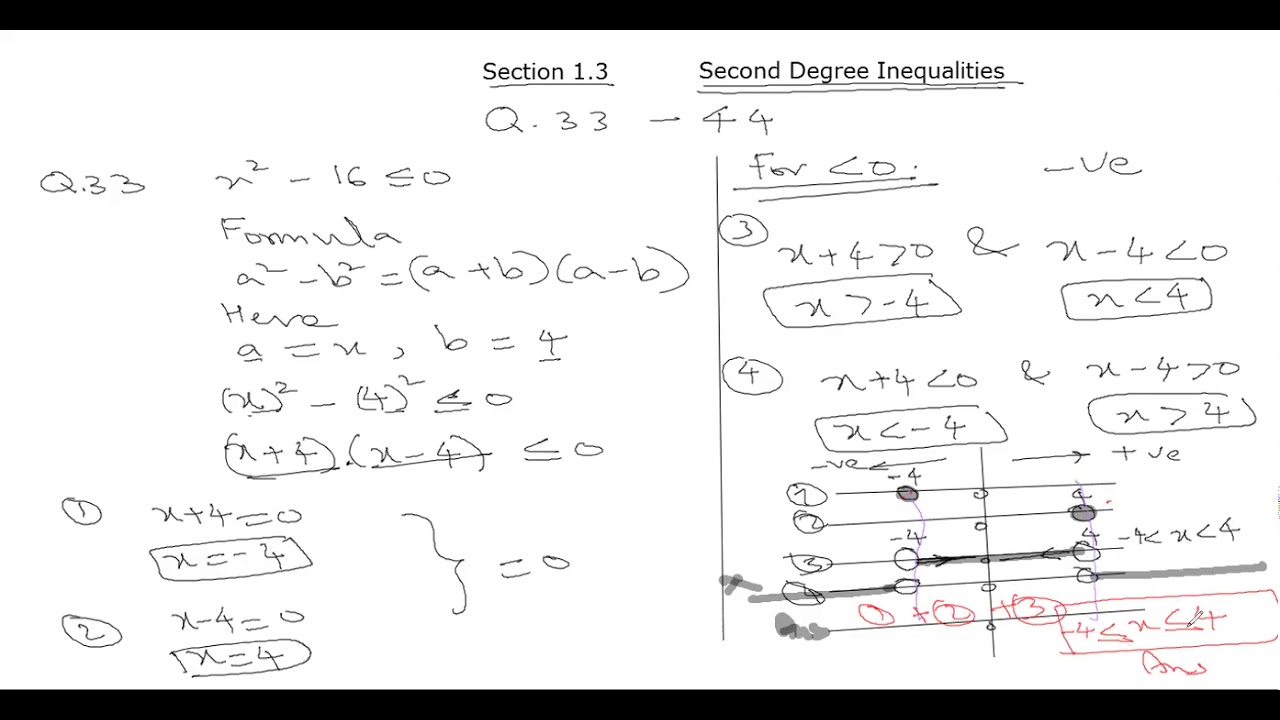 Section 1.3 Second Degree Inequalities
Q.33 - 44
Q.33 x² - 16 ≤ 0
Formula
a² - b² = (a + b)(a - b)
Here
a = x, b = 4
(x)² - (4)² ≤ 0
(x+4).(x-4) ≤ 0
① x+4=0
x=-4
② x-4=0
x=4
} = 0
For <0: -ve
③ x+4>0 & x-4<0
x>-4 x<4
④ x+4<0 & x-4>0
x<-4 x>4
-ve ← → +ve
-4
① 0 4
② 0
-4 4 -4<x<4
③ 0
④ 0
① + ② + ③ -4≤x≤4
Ans